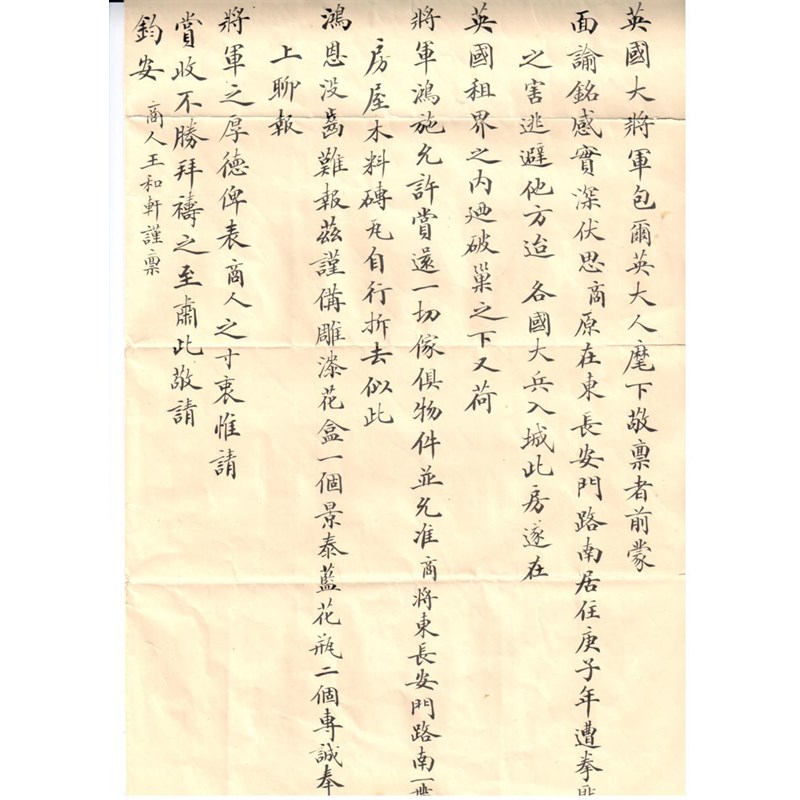 英國大將軍包爾英大人麾下敬稟者前蒙
面諭銘感實深伏思商原在東長安門路南居住庚子年遭拳
之害逃避他方迨 各國大兵入城此房遂在
英國租界之內迺破巢之下又荷
將軍鴻施允許賞還一切傢俱物件並允准商將東長安門路南一
房屋木料磚瓦自行拆去似此
鴻恩没齒難報茲謹備雕漆花盒一個景泰藍花瓶二個專誠奉
上聊報
將軍之厚德俾表商人之寸衷惟請
賞收不勝拜禱之至肅此敬請
鈞安 商人王和軒謹稟